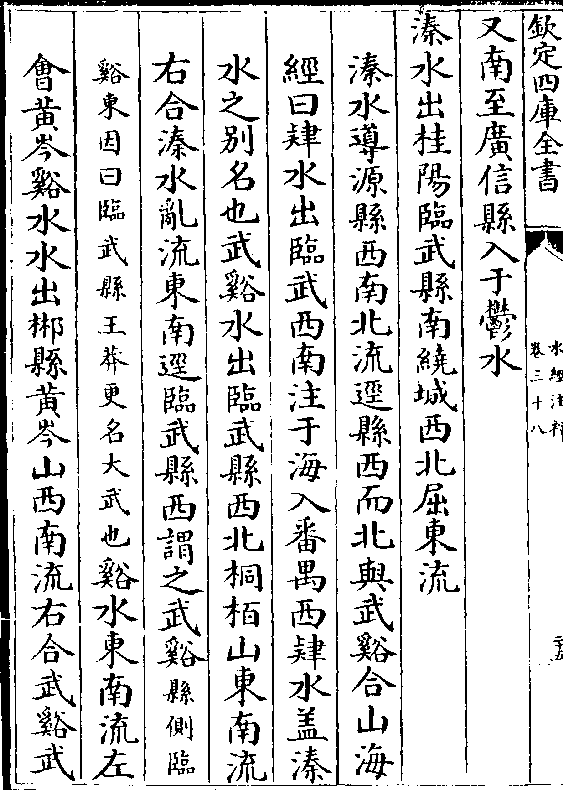 欽定四庫全書
水經注釋
卷三十八
又南至廣信縣入于鬱水
溱水出桂陽臨武縣南繞城西北屈東流
溱水導源縣西南北流逕縣西而北與武谿合山海
經曰肄水出臨武西南注于海入番禺西肄水盖溱
水之别名也武谿水出臨武縣西北桐栢山東南流
右合溱水亂流東南逕臨武縣西謂之武谿縣側臨
谿東因曰臨武縣王莽更名大武也谿水東南流左
會黄岑谿水水出郴縣黄岑山西南流右合武谿武